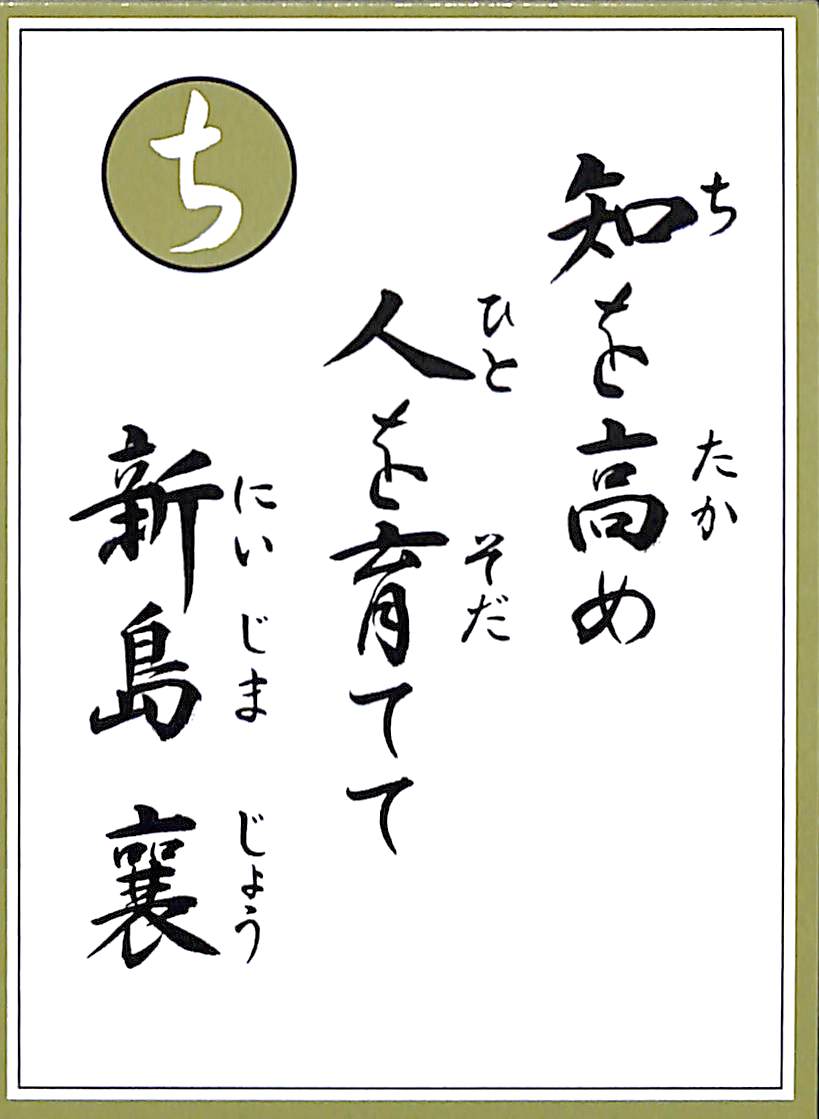 ち
知を高め
ち
たか
人を育てて
ひと
そだ
新島 襄
にいじま じょう